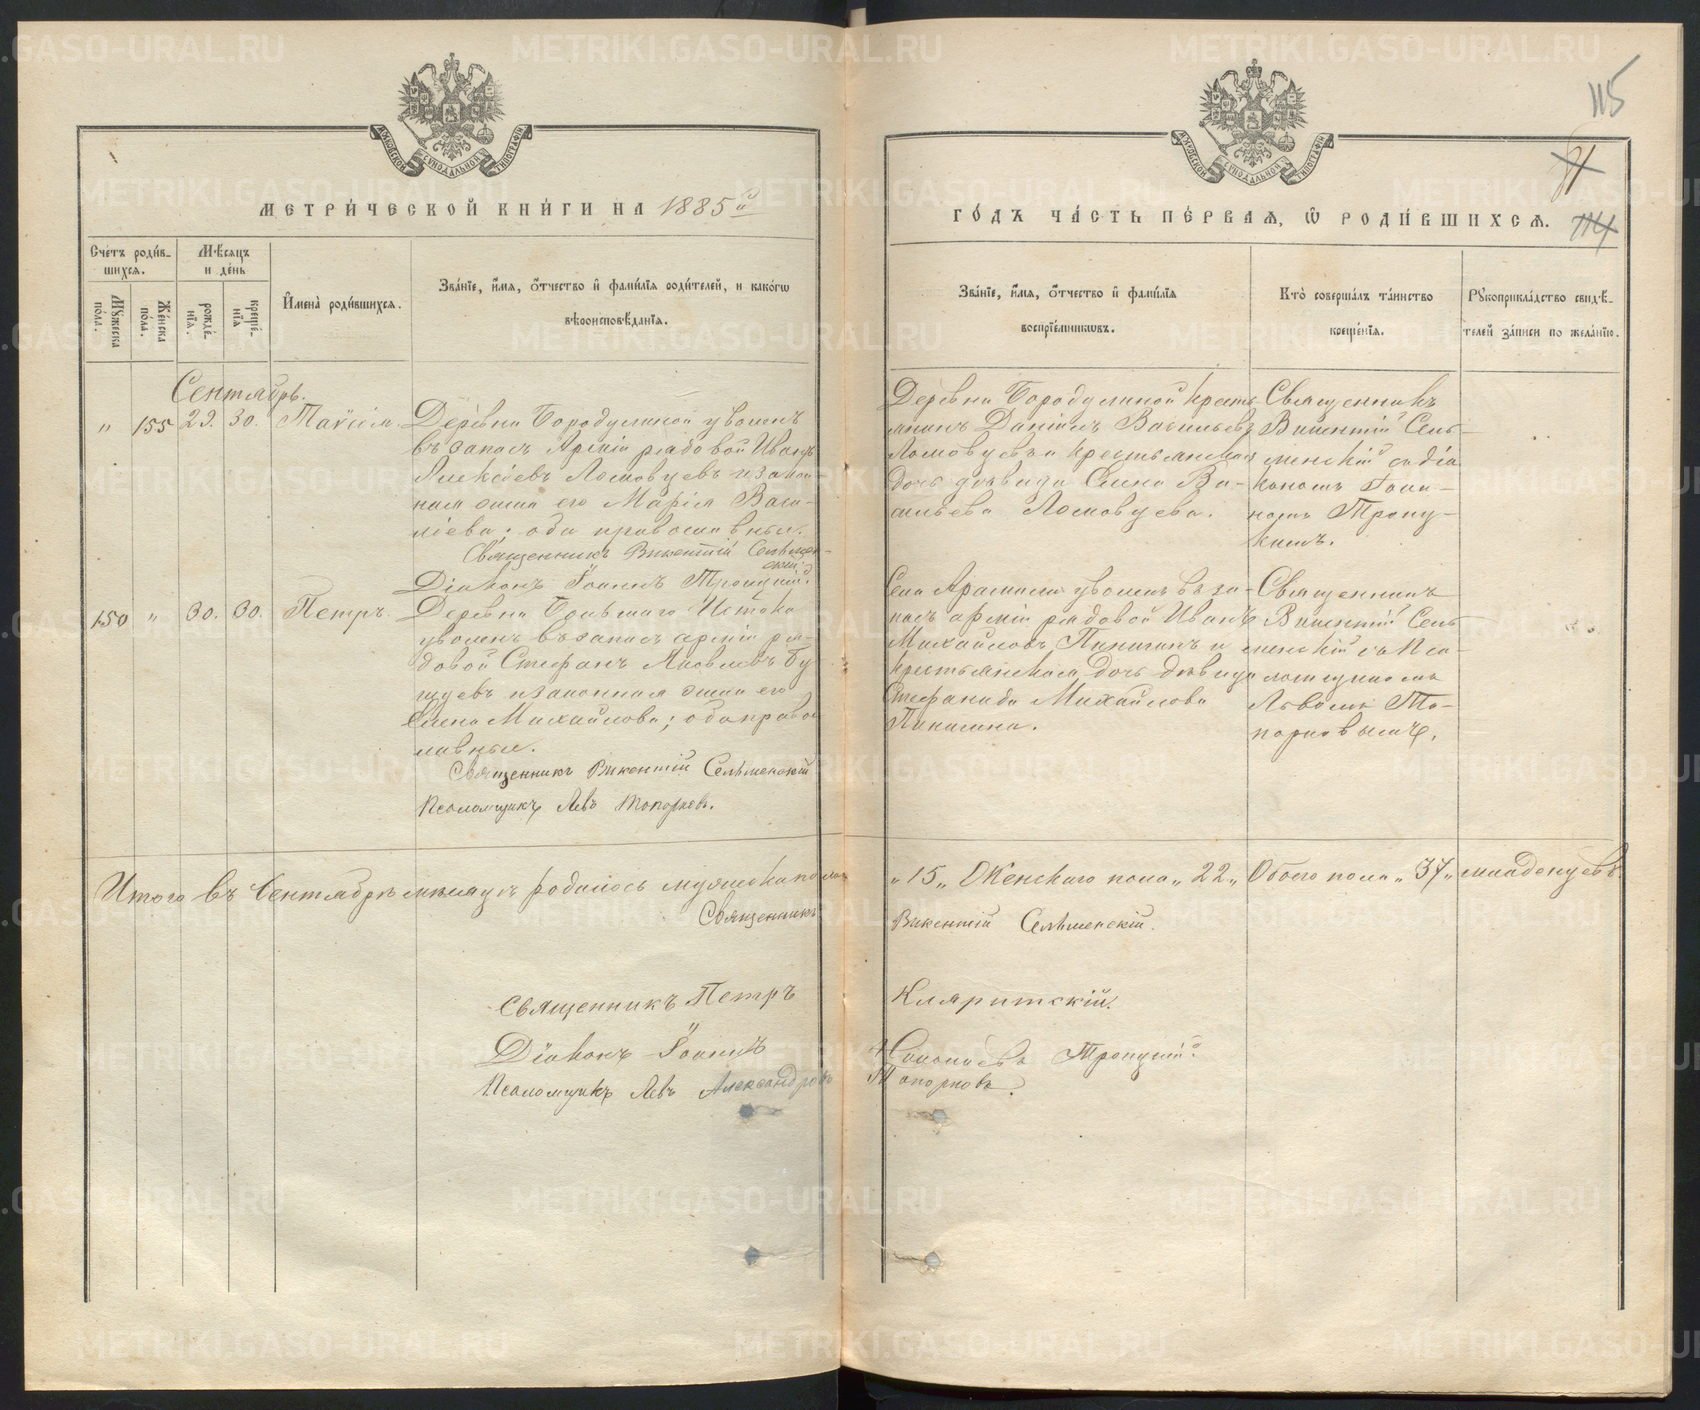 115
71
114
МЕТРИ́ЧЕСКОЙ КНИ́ГИ НА 1885й
ГО́ДЪ ЧА́СТЬ ПЕ́РВАѦ, Ѡ҆ РОДИ́ВШИХСѦ.
Сче́тъ роди́в-
шихсѧ.
Мꙋ́жеска
по́ла.
Же́нска
по́ла.
Мѣ́сѧцъ
и де́нь
рожде́-
нїѧ.
креще́-
нїѧ
И҆мена̀ роди́вшихсѧ.
Зва́нїе, и҆́мѧ, ѻ҆́тчество и҆ фами́лїѧ роди́телей, и како́гѡ
вѣроисповѣ́данїѧ.
Зва́нїе, и҆́мѧ, ѻ҆́тчество и҆ фами́лїѧ
воспрїе́мникѡвъ.
Кто̀ соверша́лъ та́инство
креще́нїѧ.
Рꙋкоприкла́дство свидѣ́-
телей за́писи по жела́нїю.
Сентябрь.
" 155 29. 30. Таисія.
Деревни Бородулиной уволенъ
въ запасъ Арміи рядовой Иванъ
Алексѣевъ Ломовцевъ и закон-
ная жена его Марія Васи-
ліева; оба православные.
Священникъ Викентій Сельмен-
скій
Діаконъ Іоаннъ Троицкій
Деревни Бородулиной крестъ-
янинъ Даніилъ Васильевъ
Ломовцевъ и крестьянская
дочь дѣвица Елена Ва-
сильева Ломовцева.
Священникъ
Викентій Сель-
менскій съ діа
кономъ Іоан-
номъ Троиц-
кимъ.
150 " 30. 30. Петръ.
Деревни Большаго Истока
уволенъ въ запасъ арміи ря-
довой Стефанъ Яковлевъ Бу
и законная жена его
Елена Михайлова; оба правос
лавные.
Священникъ Викентій Сельменскій
Псаломщикъ Левъ Топорковъ.
Села Арамили уволенъ въ за-
пасъ арміи рядовой Иванъ
Михайловъ и
крестьянская дочь дѣвица
Стефанида Михайлова
Священникъ
Викентій Сель
менскій съ Пса-
ломщикомъ
Львомъ То-
порковымъ.
Итого въ Сентябрѣ мѣсяцѣ родилось мужеска пола
"15" Женскаго пола "22" Обоего пола "37" младенцевъ.
Священникъ
Викентій Сельменскій.
Священникъ Петръ
Кляритскій.
Діаконъ Іоаннъ
Троицкій
Псаломщикъ Левъ Александровъ
Топорковъ.